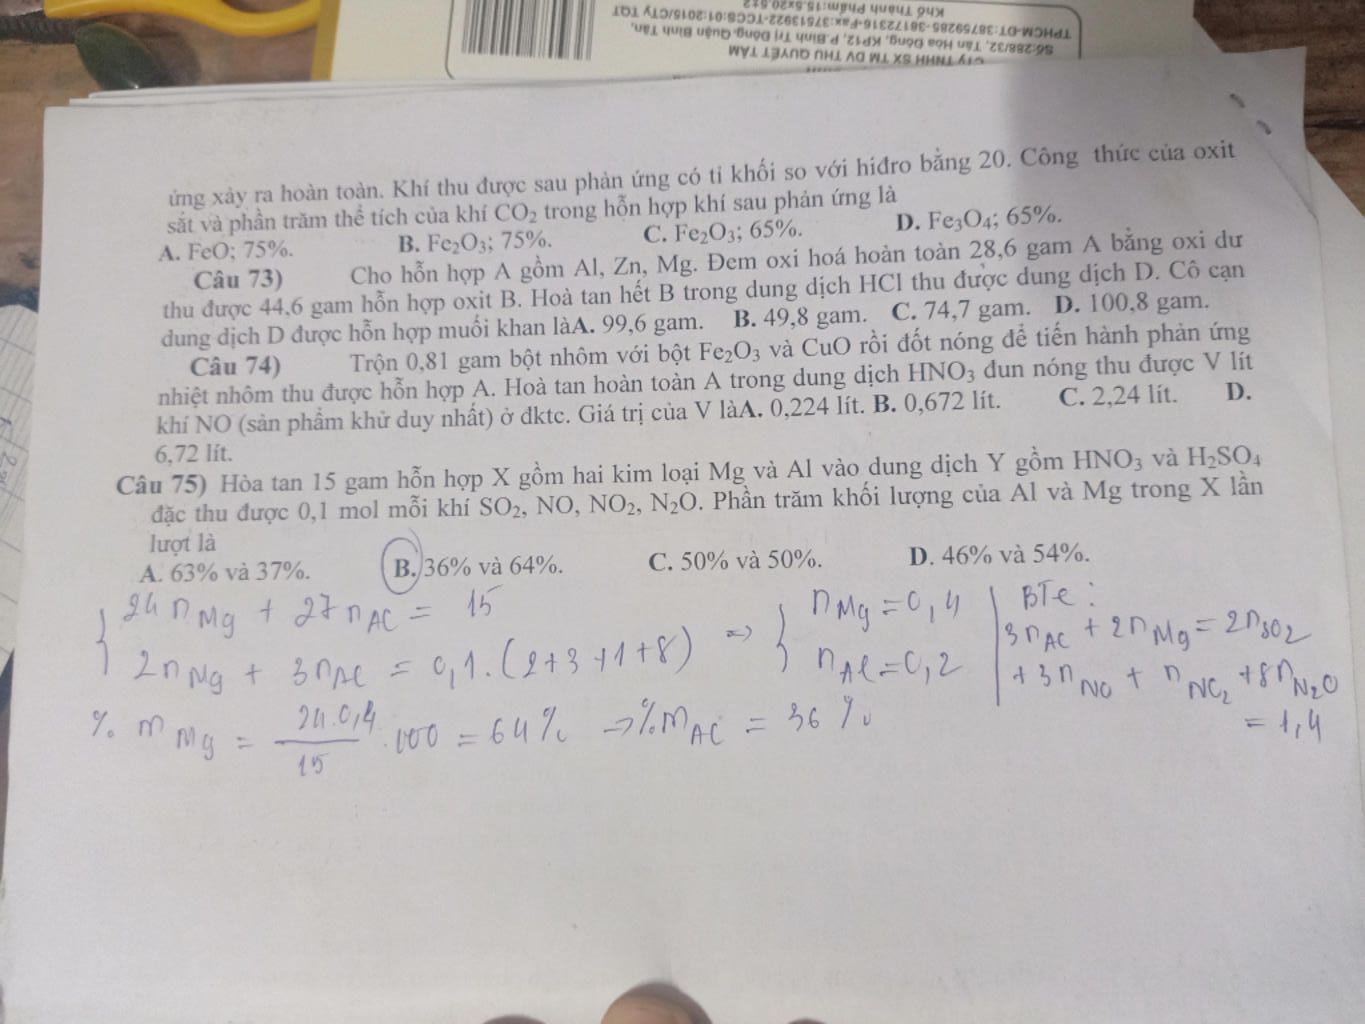 Cty TNHH SX TM DV THU QUYẾT TÂM
Số:288/32, Tân Hòa Đông, KP12, P.Bình Trị Đông, Quận Bình Tân,
TPHCM-ĐT:38759285-38172316-Fax:37513922-TCCS:01:2015/CTy TQT
Khổ Thành Phẩm:15.5x20.5±2
ứng xảy ra hoàn toàn. Khí thu được sau phản ứng có tỉ khối so với hiđro bằng 20. Công thức của oxit
sắt và phần trăm thể tích của khí CO₂ trong hỗn hợp khí sau phản ứng là
A. FeO; 75%. B. Fe₂O₃; 75%. C. Fe₂O₃; 65%. D. Fe₃O₄; 65%.
Câu 73) Cho hỗn hợp A gồm Al, Zn, Mg. Đem oxi hoá hoàn toàn 28,6 gam A bằng oxi dư
thu được 44,6 gam hỗn hợp oxit B. Hoà tan hết B trong dung dịch HCl thu được dung dịch D. Cô cạn
dung dịch D được hỗn hợp muối khan làA. 99,6 gam. B. 49,8 gam. C. 74,7 gam. D. 100,8 gam.
Câu 74) Trộn 0,81 gam bột nhôm với bột Fe₂O₃ và CuO rồi đốt nóng để tiến hành phản ứng
nhiệt nhôm thu được hỗn hợp A. Hoà tan hoàn toàn A trong dung dịch HNO₃ đun nóng thu được V lít
khí NO (sản phẩm khử duy nhất) ở đktc. Giá trị của V làA. 0,224 lít. B. 0,672 lít. C. 2,24 lít. D.
6,72 lít.
Câu 75) Hòa tan 15 gam hỗn hợp X gồm hai kim loại Mg và Al vào dung dịch Y gồm HNO₃ và H₂SO₄
đặc thu được 0,1 mol mỗi khí SO₂, NO, NO₂, N₂O. Phần trăm khối lượng của Al và Mg trong X lần
lượt là
A. 63% và 37%. B. 36% và 64%. C. 50% và 50%. D. 46% và 54%.
24 n Mg + 27 n Al = 15
2n Mg + 3n Al = 0,1.(2+3+1+8)
=> n Mg = 0,4
n Al = 0,2
BTe:
3n Al + 2n Mg = 2n SO₂
+ 3n NO + n NO₂ + 8n N₂O
= 1,4
% m Mg = 24.0,4/15 .100 = 64% → %m Al = 36%